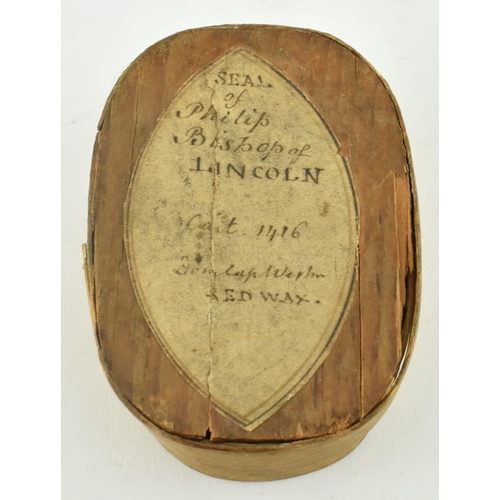 SEAL
of
Philip
Bishop of
LINCOLN
Cart. 1416
Dom Cap Westm
RED WAX.